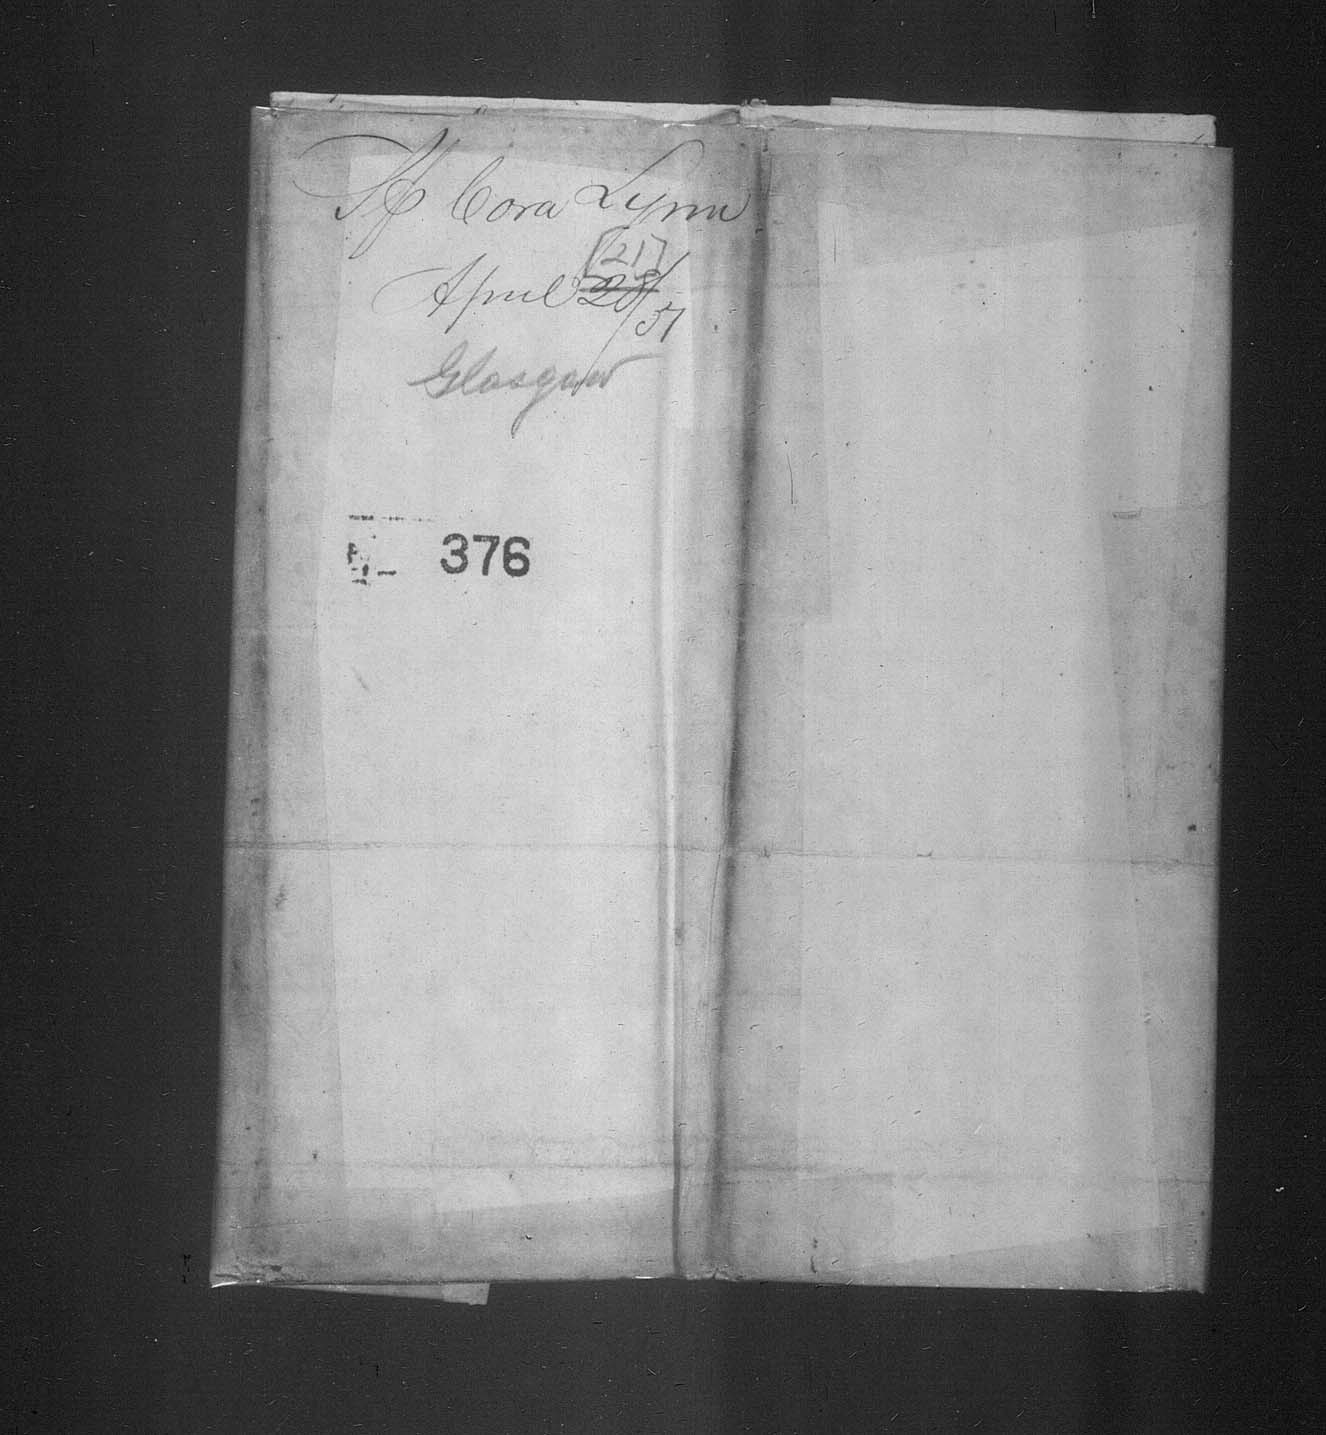 Sp Cora Lynn
[21]
April 28/51
Glasgow
376